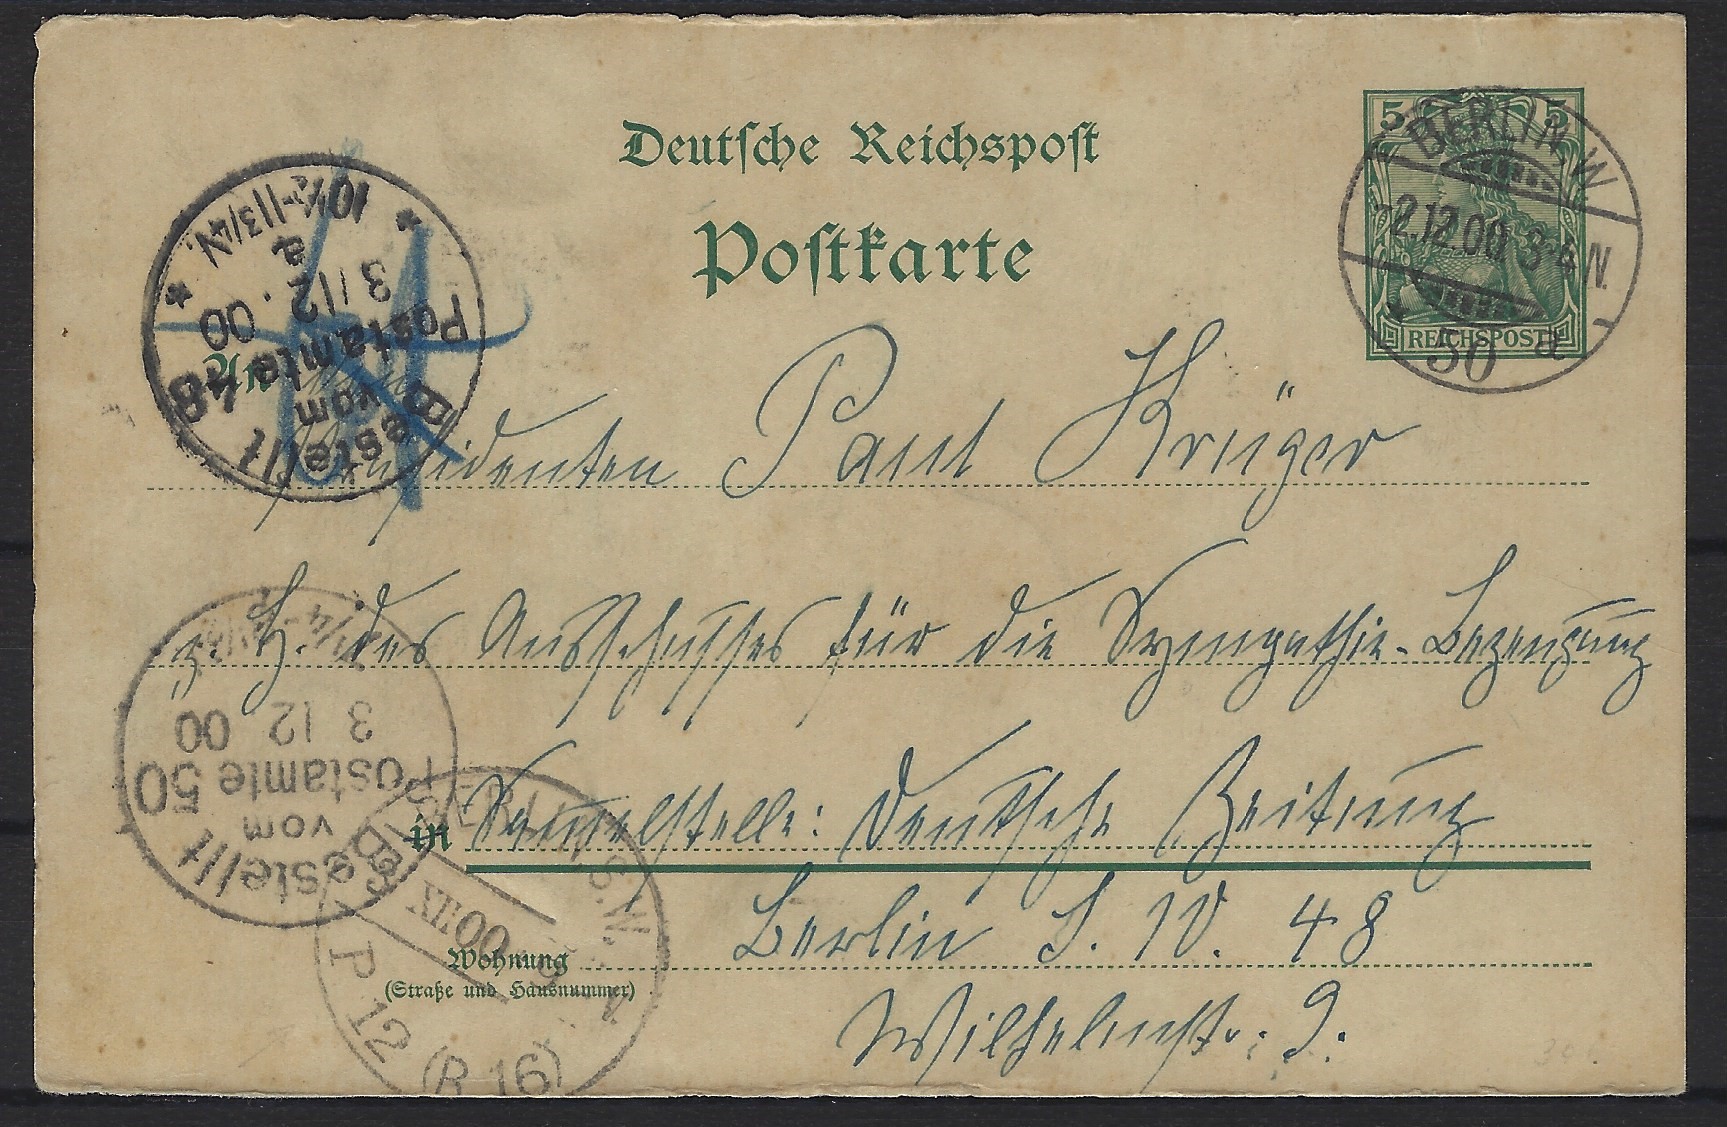 Deutsche Reichspost
Postkarte
5 5
REICHSPOST
BERLIN. W
2.12.00. 3-4 N.
* 50 a
Bestellt
vom
Postamte 48
3/12.00
a
10½-11¾N.
An
Präsidenten Paul Krüger
z. H. des Ausschusses für die Sympathie-Bezeugung
in Sammelstelle: Deutsche Zeitung
Berlin S. W. 48
Wohnung
(Straße und Hausnummer)
Wilhelmstr.: 9.
Bestellt
vom
Postamte 50
3 12 00
BERLIN, S.W.
P 12 (R 16)